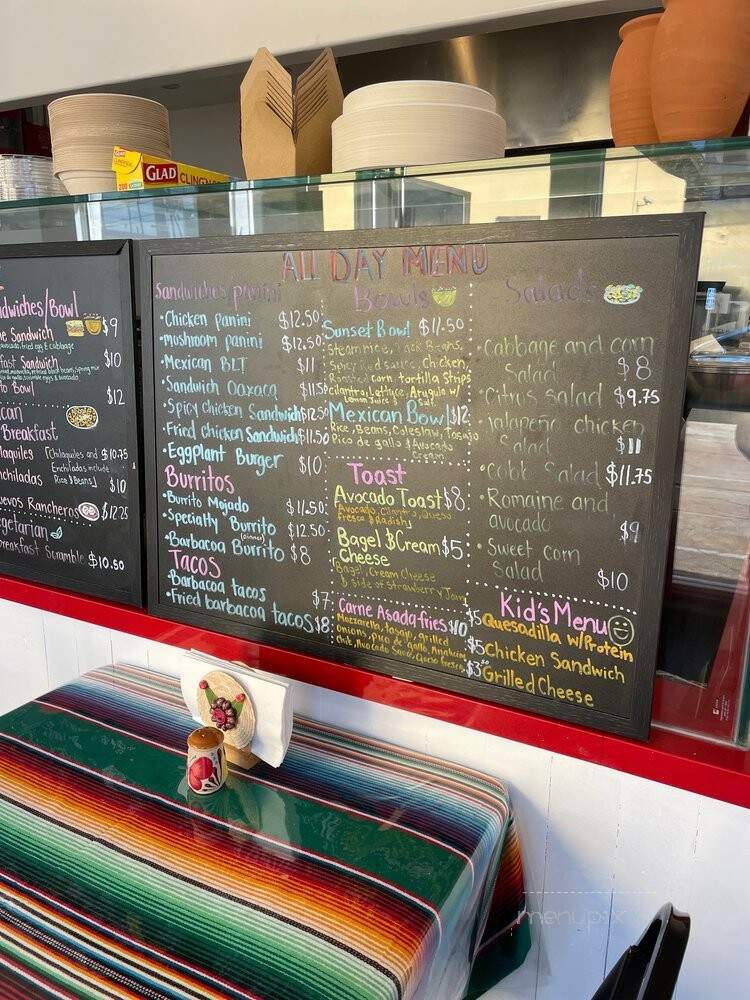 GLAD
CLINGWRAP
dwiches/Bowl
Sandwich $9
fried egg & cabbage
fast Sandwich $10
Bowl $12
can
Breakfast
laquiles [Chilaquiles and $10.75
chiladas Enchiladas include
Rice & Beans] $10
evos Rancheros $12.25
egetarian
reakfast Scramble $10.50
ALL DAY MENU
Sandwiches/panini
• Chicken panini $12.50
• mushroom panini $12.50
• Mexican BLT $11
• Sandwich Oaxaca $11.50
• Spicy chicken Sandwich $12.50
• Fried chicken Sandwich $11.50
• Eggplant Burger $10
Burritos
• Burrito Mojado $11.50
• Specialty Burrito $12.50
(dinner)
• Barbacoa Burrito $8
Tacos
• Barbacoa tacos $7
• Fried barbacoa tacos $8
Bowls
Sunset Bowl $11.50
Steam rice, Black Beans,
Spicy Red sauce, Chicken,
Roasted corn, tortilla strips
cilantro, Lettuce, Arugula w/
Lemon Juice & Salt
Mexican Bowl $12
Rice, Beans, Coleslaw, Tasajo
Pico de gallo & Avocado
Cream
Toast
Avocado Toast $8
Avocado, Cilantro, Queso
Fresco & Radish
Bagel & Cream $5
Cheese
Bagel, Cream Cheese
& side of strawberry Jam
Carne Asada fries $10
Mozzarella, tasajo, grilled
onions, pico de gallo, Anaheim
Chile, Avocado Sauce, Queso fresco
Salads
• Cabbage and corn
Salad $8
• Citrus salad $9.75
• Jalapeño chicken
Salad $11
• Cobb Salad $11.75
• Romaine and
avocado $9
• Sweet corn
Salad $10
Kid's Menu
$5 Quesadilla w/Protein
$5 Chicken Sandwich
$3 Grilled Cheese
menupix